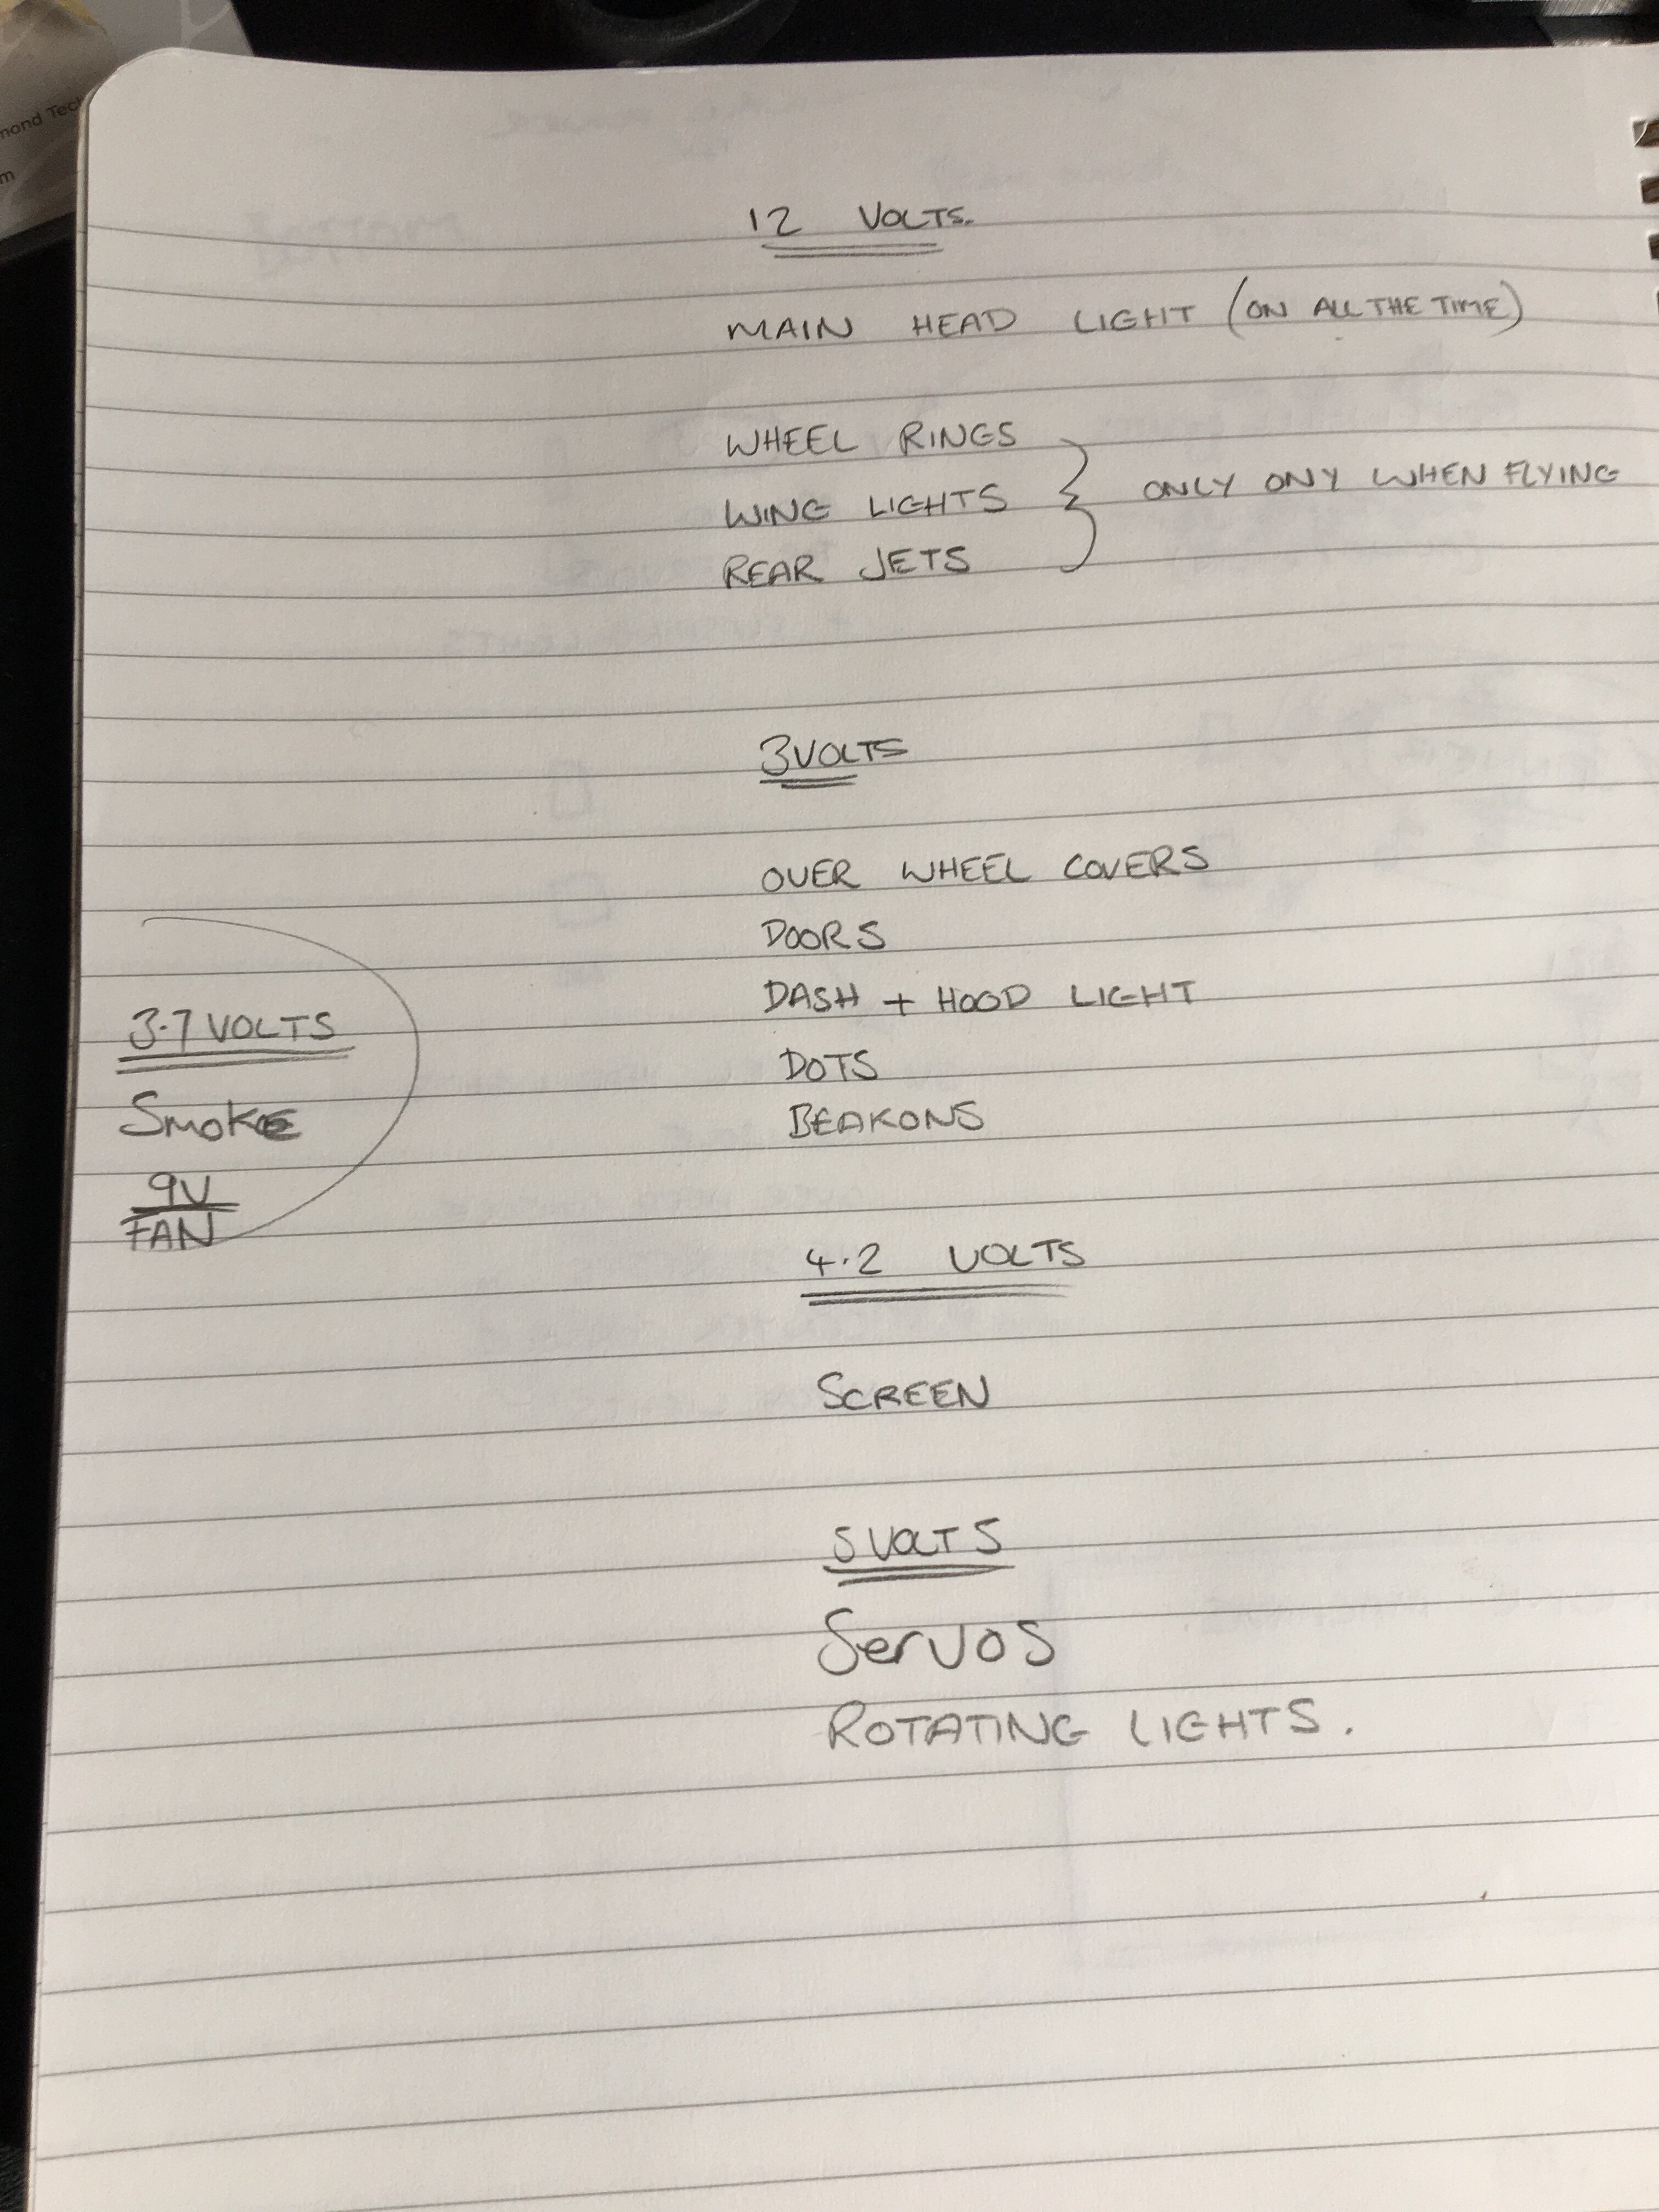 mond Tec
m
12 VOLTS.
MAIN HEAD LIGHT (ON ALL THE TIME)
WHEEL RINGS
WING LIGHTS } ONLY ONY WHEN FLYING
REAR JETS
3 VOLTS
OVER WHEEL COVERS
DOORS
DASH + HOOD LIGHT
DOTS
BEAKONS
3.7 VOLTS
Smoke
9V
FAN
4.2 VOLTS
SCREEN
5 VOLTS
Servos
ROTATING LIGHTS.